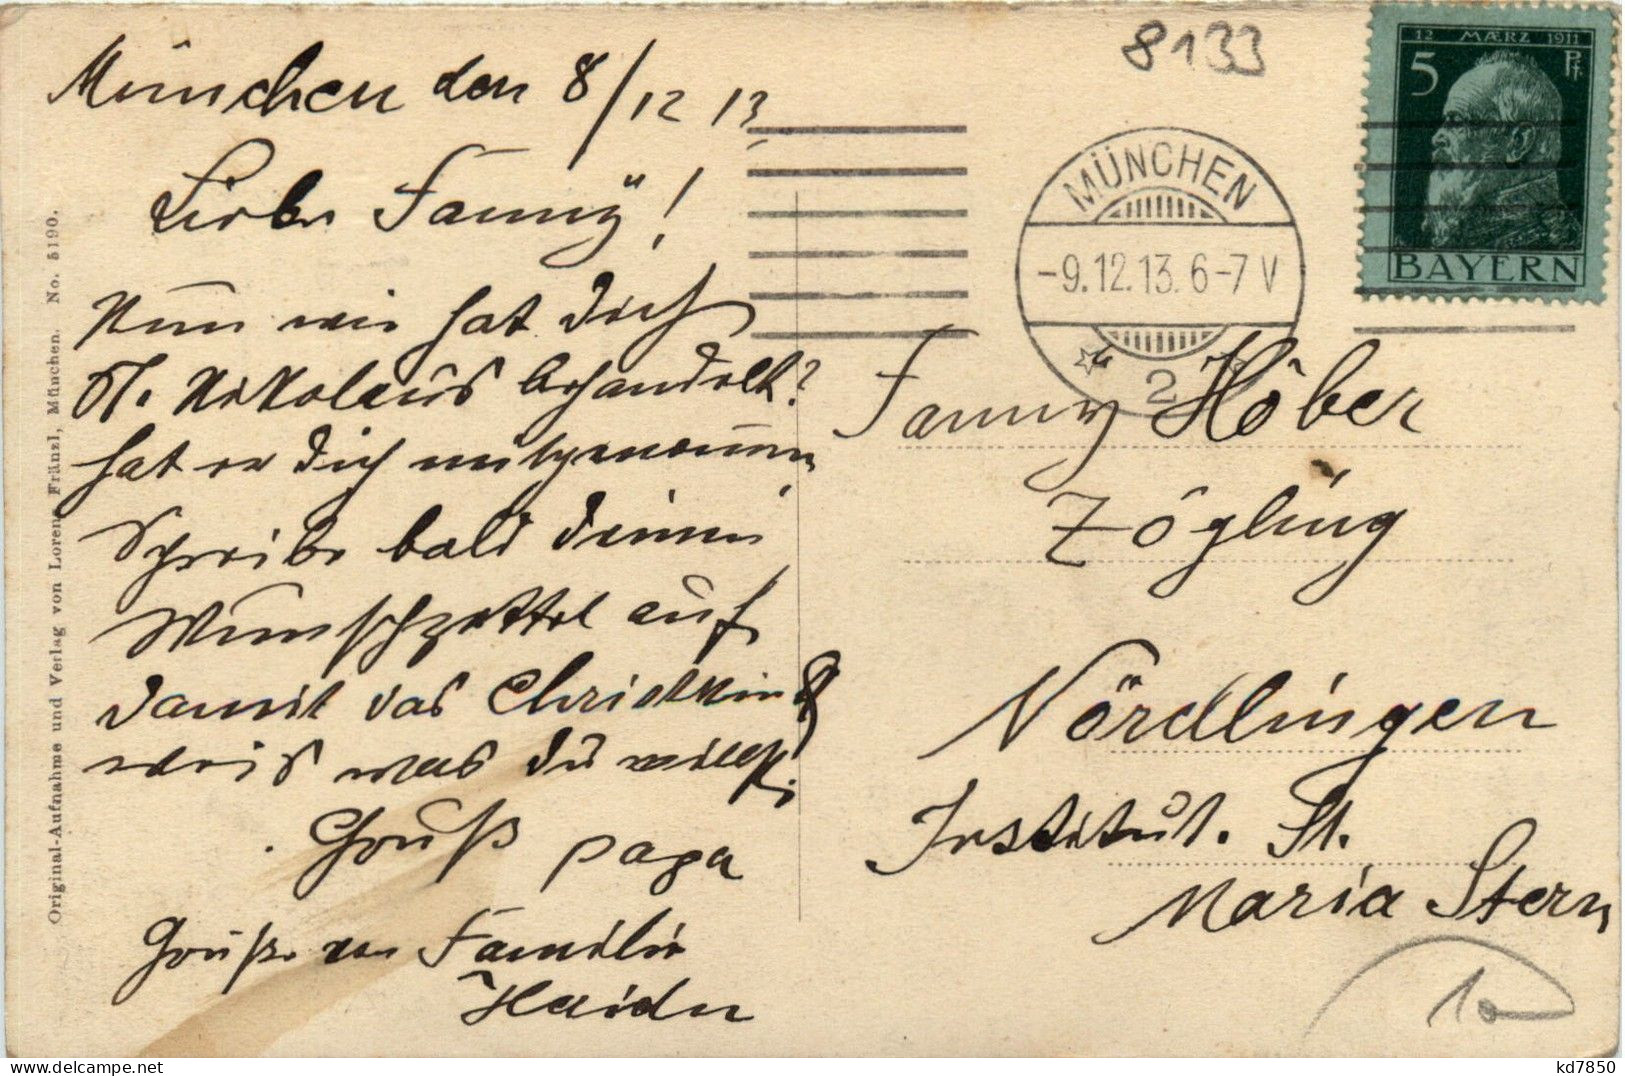 München den 8/12 13
Liebe Fanny!
Nun wie hat dich
St. Nikolaus behandelt?
hat er dich mitgenommen
Schreibe bald deinen
Wunschzettel auf
damit das Christkind
weis was du willst.
Gruß papa
Grüße von Familie
Haidn
Original-Aufnahme und Verlag von Lorenz Fränzl, München. No. 5190.
8133
12 MÆRZ 1911
5 Pf
BAYERN
MÜNCHEN
-9.12.13. 6-7 V
2
Fanny Höber
Zögling
Nördlingen
Institut. St.
Maria Stern
10
kd7850